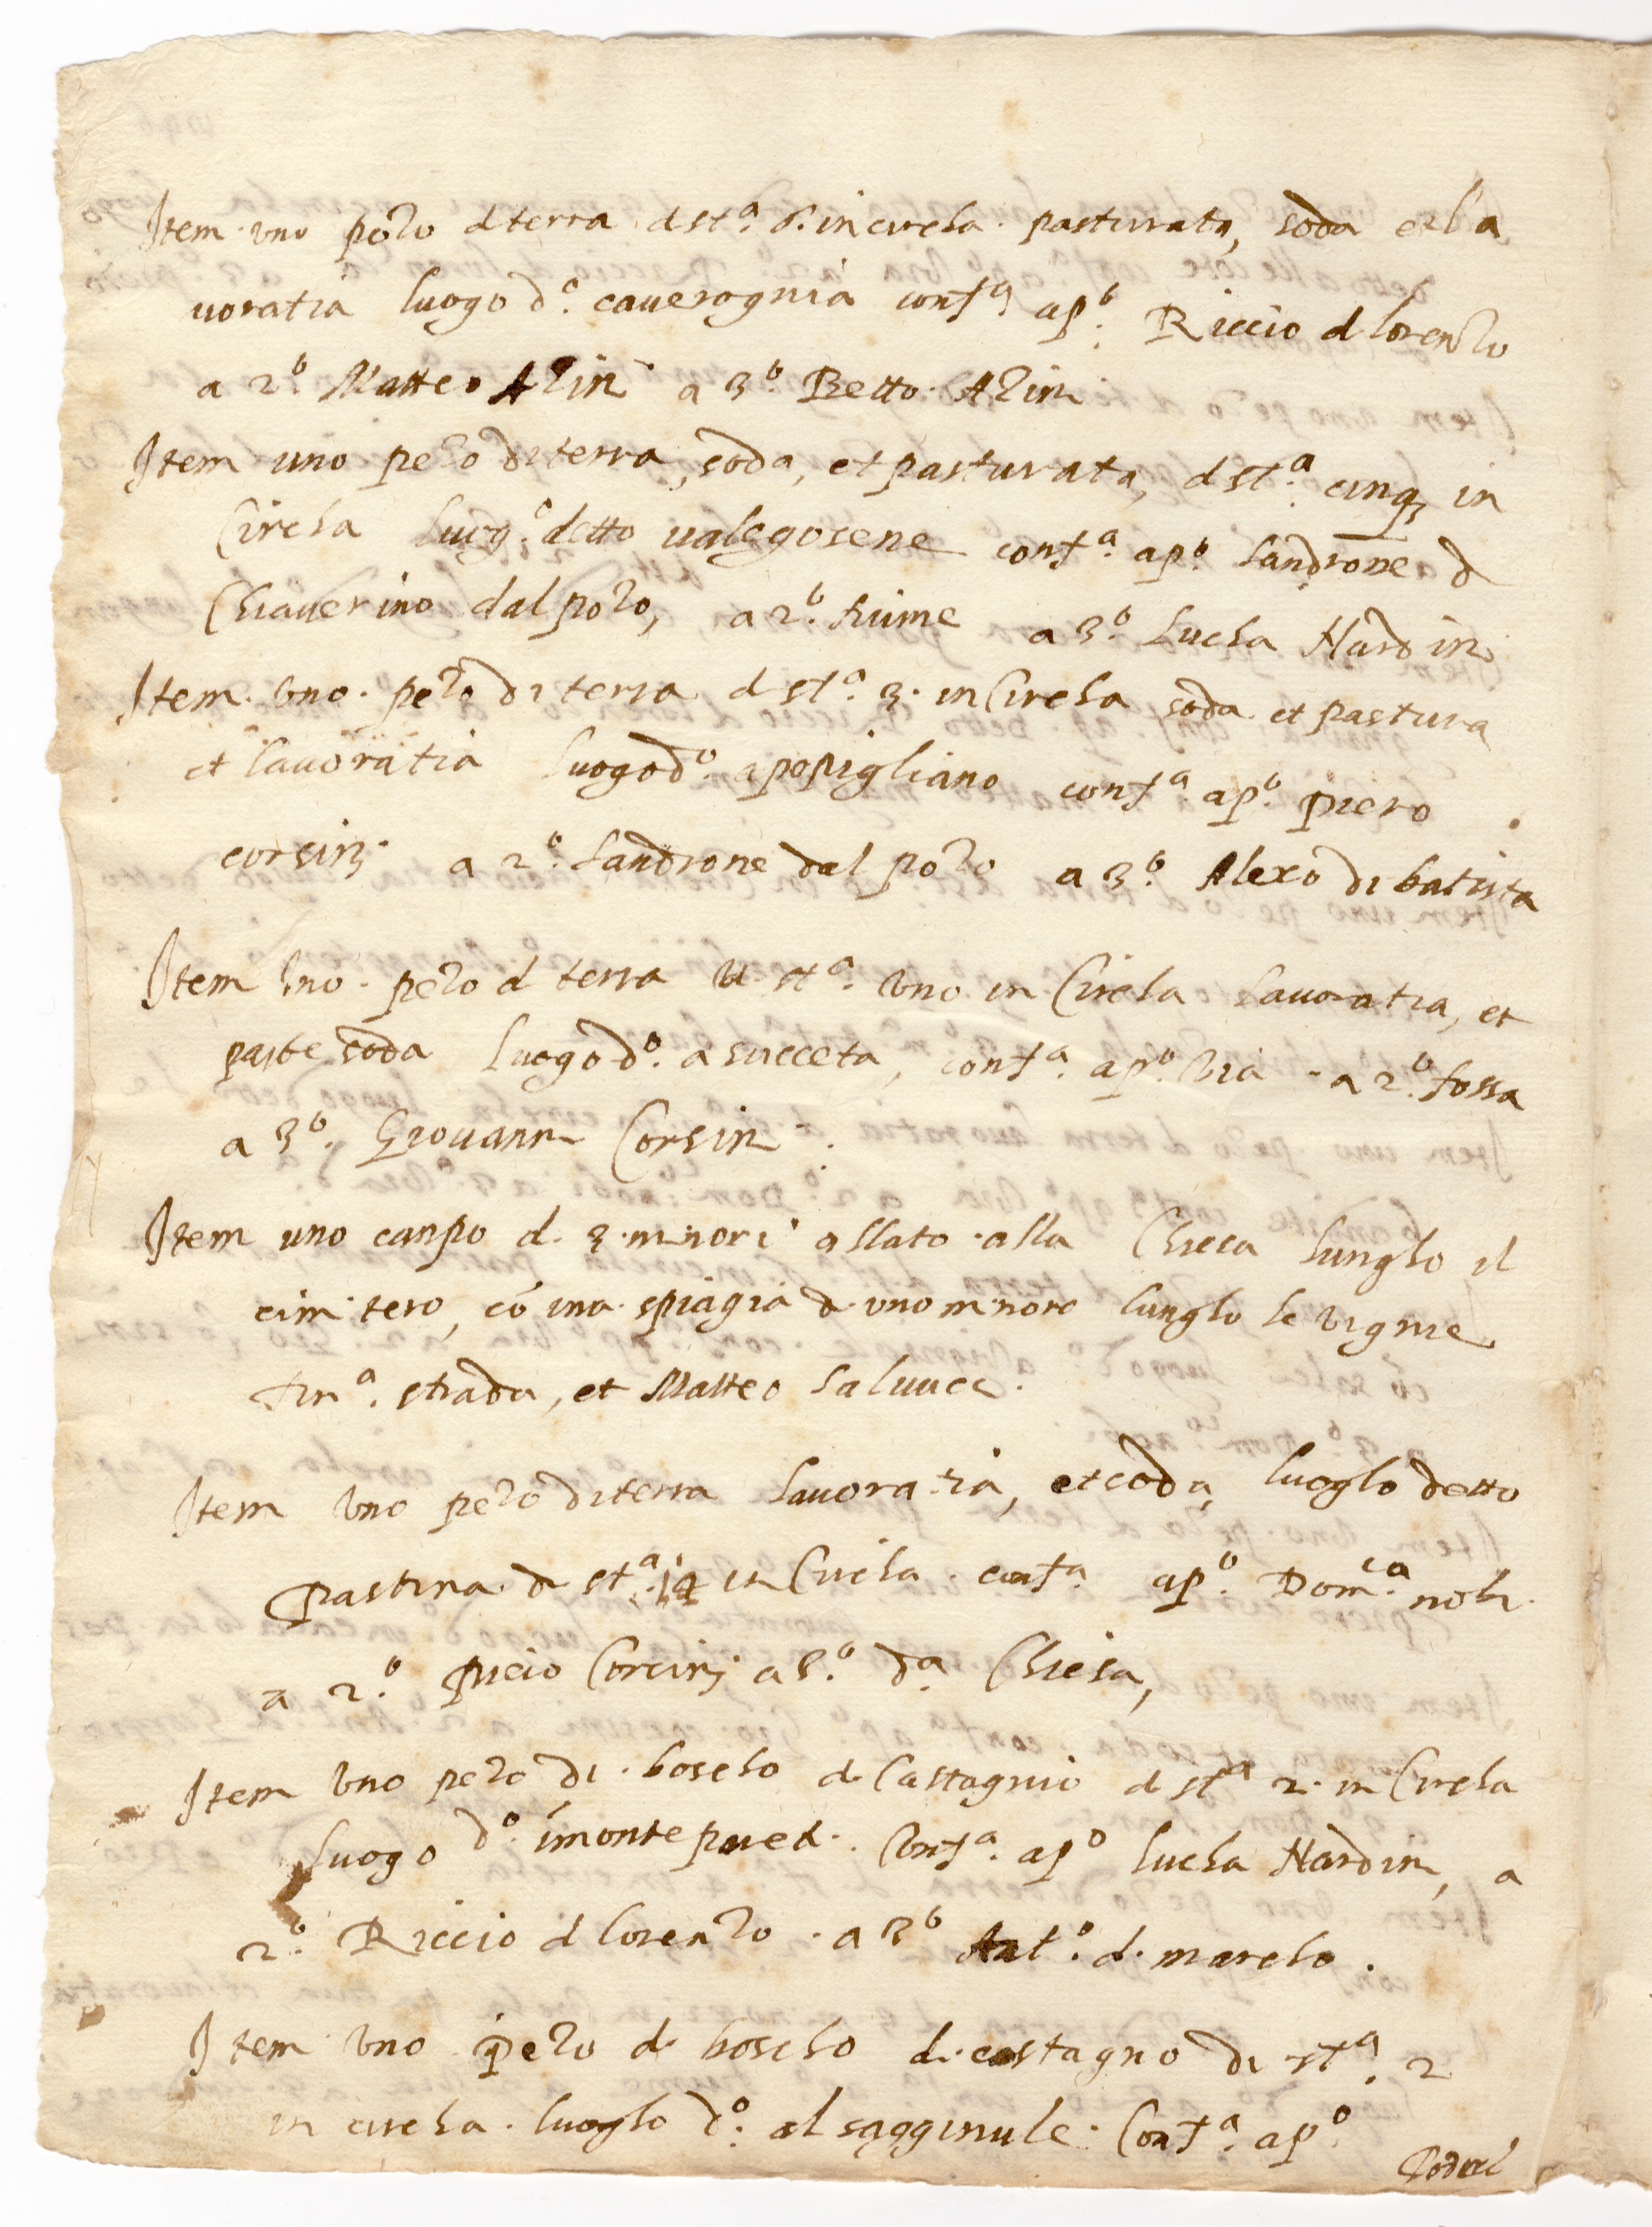 Item · uno pezo d terra d st.ª 6. in circha · pasturata, soda et la
uoratia luogo d.º caueragnia conf.ª ap.º Riccio d lorenzo
a 2.º Matteo Azin a 3.º Betto · Azin
Item uno pezo di terra, soda, et pasturata, d st.ª cinq; in
Circha luog.º detto ualegosene conf.ª ap.º Sandrone d
Chiauerino dal pozo, a 2.º fiume a 3.º Lucha Nardin
Item · Uno · pezo di terra d st.ª 3 · in Circha soda et pastura
et lauoratia luogo d.º apopigliano conf.ª ap.º piero
corsinj · a 2.º Sandrone dal pozo a 3.º Alexo di batista
Item Uno · pezo d terra st.ª Uno in Circha lauoratia, et
parte soda luogo d.º a succeta, conf.ª ap.º Via · a 2.º fossa
a 3.º Giouann Corsin
Item uno canpo d. 3 · minori allato · alla Chiesa lungho il
cimitero, cō una · spiagia d · uno minore lungho le vignie
fin.ª strada, et Matteo Saluucc ·
Item Uno pezo di terra lauoratia, et soda, luogho detto
pastina · d st.ª in Circha · conf.ª ap.º Dom.ca nobi ·
a 2.º piero Corsinj a 3.º d.ª Chiesa,
Item Uno pezo di · boscho d Castagnio d st.ª 2 · in Circha
luogo d.º Conf.ª ap.º lucha Nardin, a
2.º Riccio d lorenzo · a 3.º Ant.º d · marcho ·
Item Uno pezo d · boscho d · castagno di st.ª 2
in circha · luogho d.º al sagginule · Conf.ª ap.º